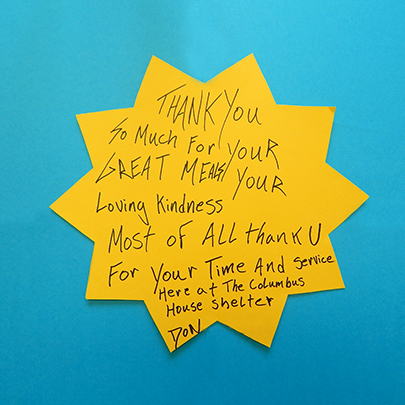 THANK YOU
So Much For YOUR
GREAT MEALS/ YOUR
Loving Kindness
Most of ALL thank U
For Your Time And Service
Here at The Columbus
House shelter
DON